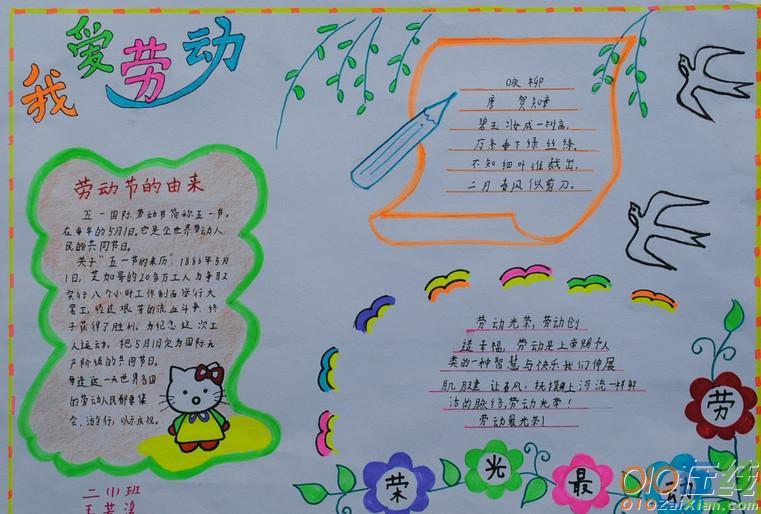 我爱劳动
劳动节的由来
五一国际劳动节简称五一节,
在每年的5月1日。它是全世界劳动人
民的共同节日。
关于"五一节的来历",1886年5月
1日,芝加哥的20多万工人为争取
实行八个小时工作制而举行大
罢工,经过艰苦的流血斗争,终
于获得了胜利。为纪念这次工
人运动,把5月1日定为国际无
产阶级的共同节日。
每逢这一天世界各国
的劳动人民都要集
会、游行,以示庆祝。
二小班
王
咏柳
唐 贺知章
碧玉妆成一树高,
万条垂下绿丝绦。
不知细叶谁裁出,
二月春风似剪刀。
劳动光荣,劳动创
造幸福,劳动是上帝赐予人
类的一种智慧与快乐我们伸展
肌腱 让春风,抚摸上河流一样鲜
活的脉络,劳动光荣!
劳动最光荣!
劳
动
最
光
荣
010在线
010zaixian.com